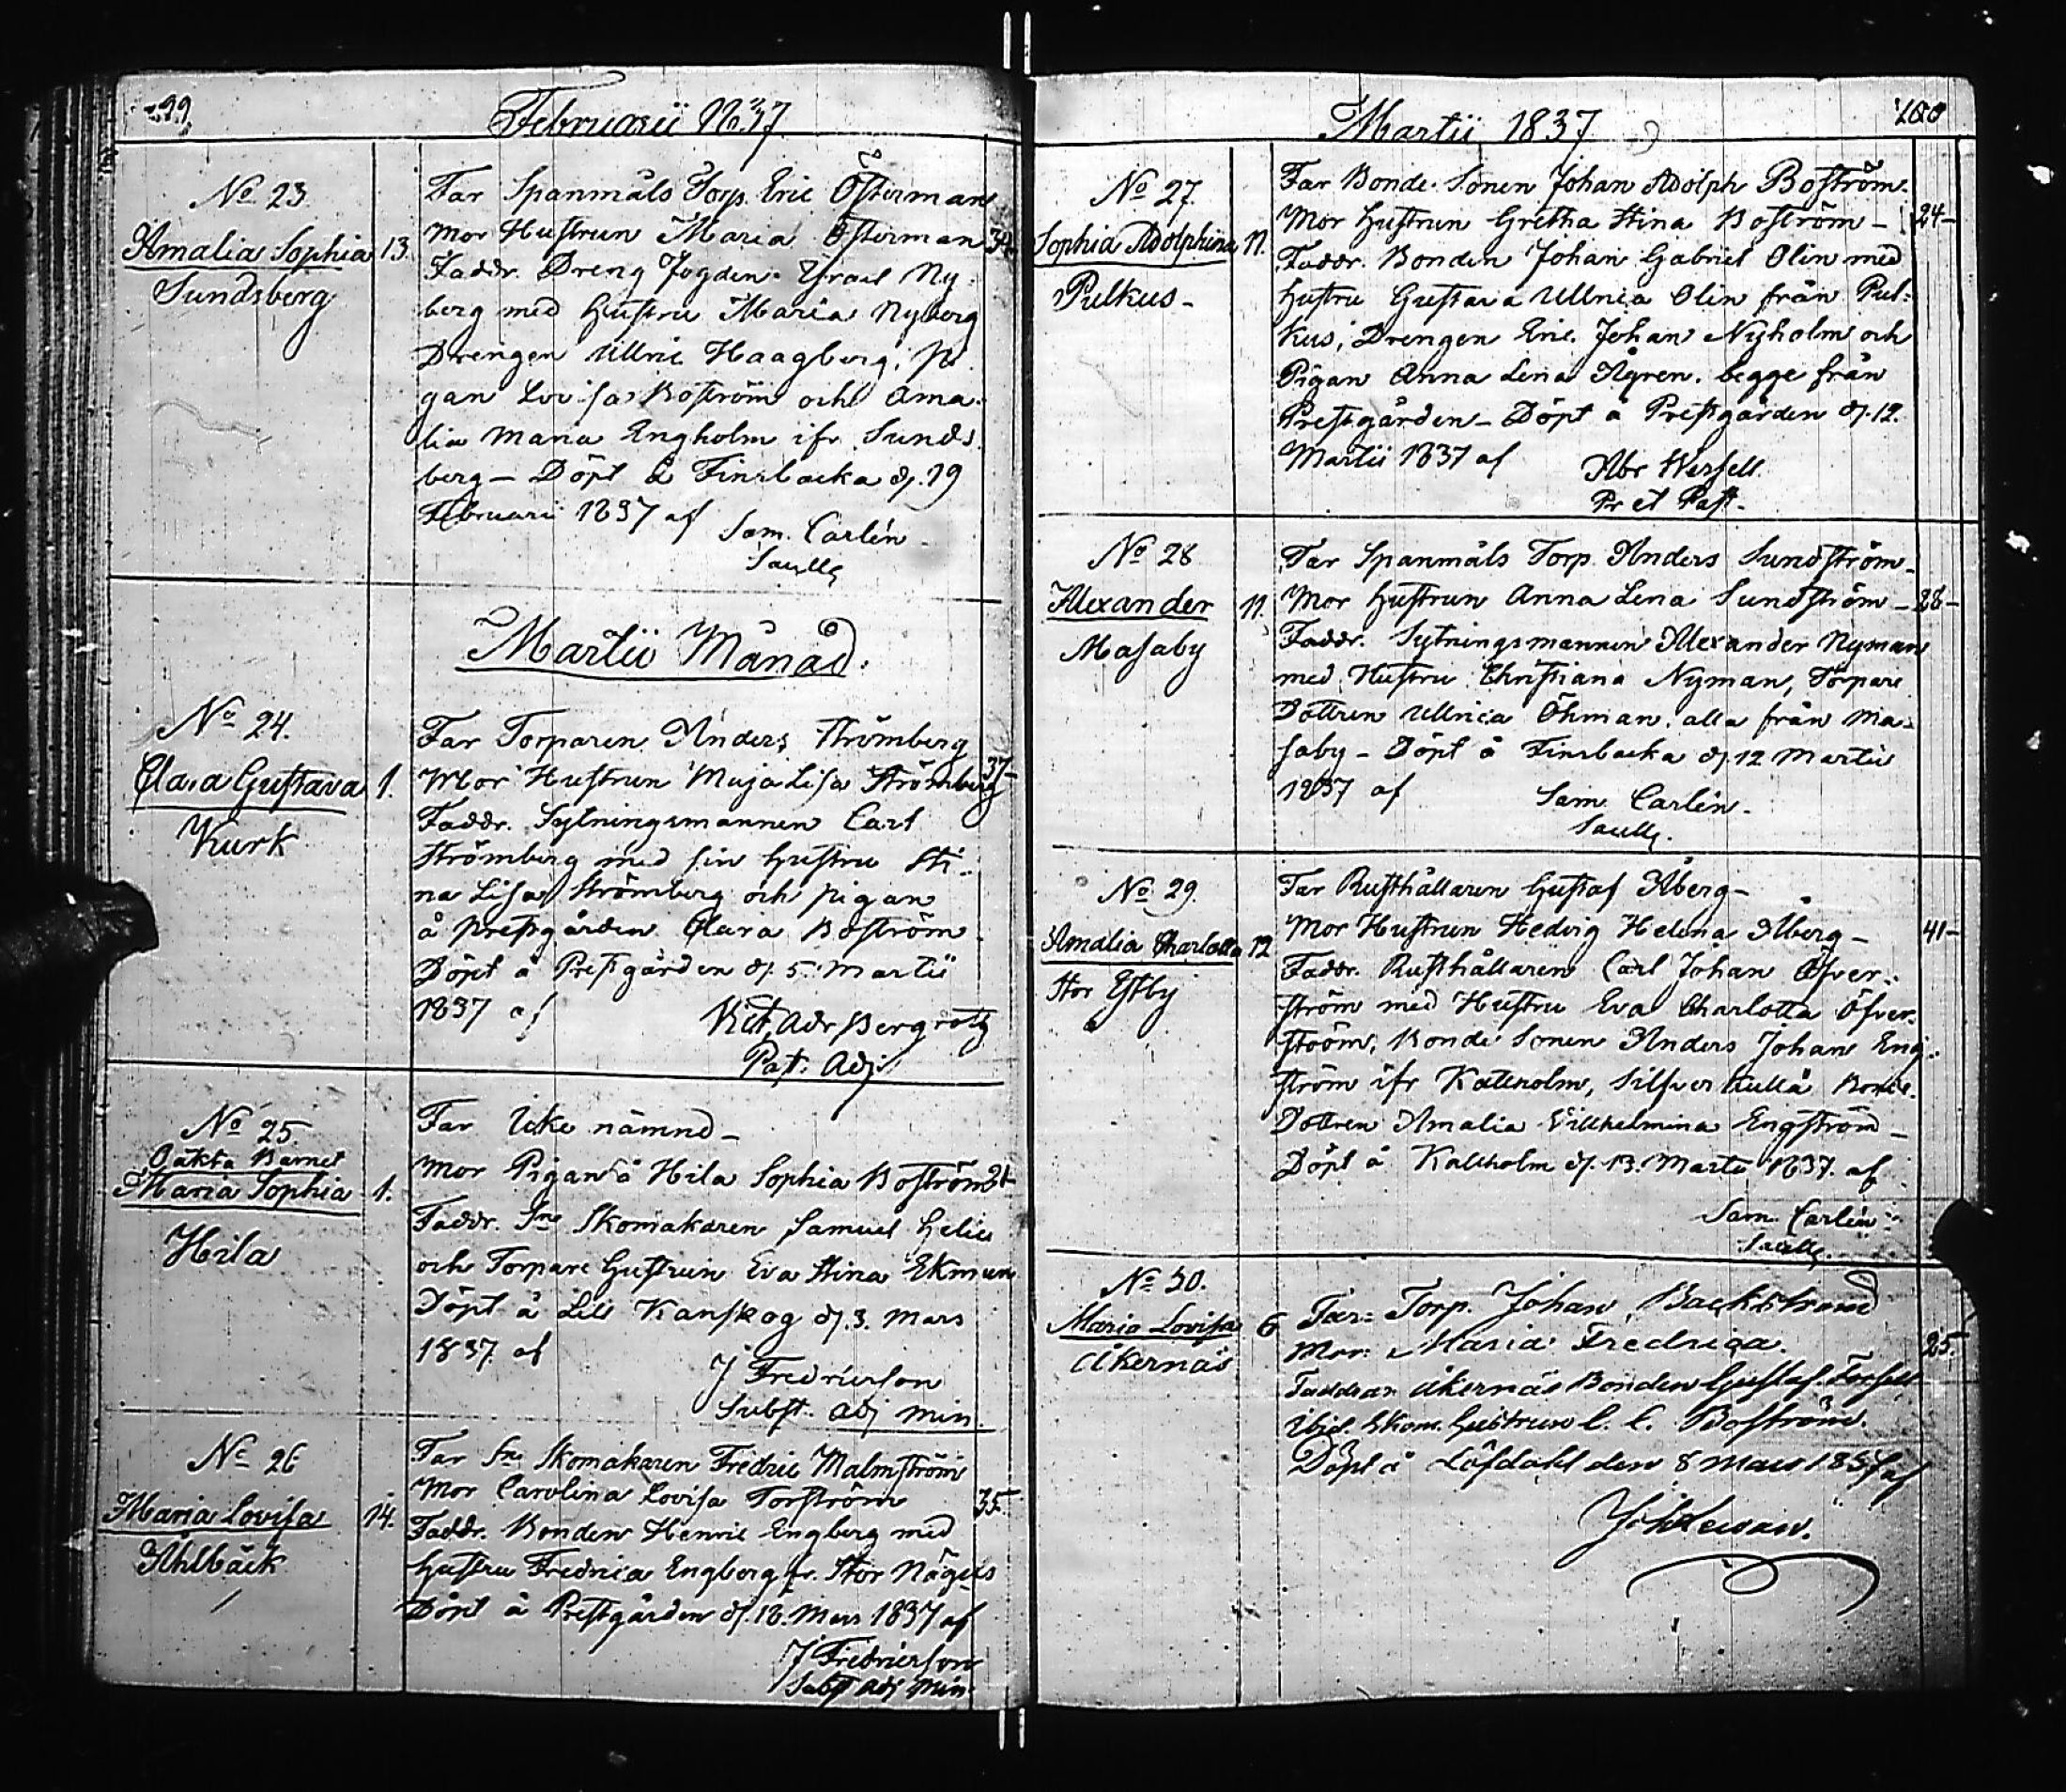 99
Februarii 1837
No 23.
Amalia Sophia 13.
Sundsberg
Far Spanmåls Torp. Eric Österman
Mor Hustrun Maria Österman 34
Faddr. Dreng Fogden Israel Ny
berg med Hustru Maria Nyberg
Drengen Ullric Haagberg, Pi
gan Lovisa Boström och Ama
lia Maria Engholm ifr Sunds
berg – Döpt å Finsbacka d. 19
Februarii 1837 af
Sam. Carlén
Martii Månad.
No 24.
Clara Gustava 1.
Kurk
Far Torparen Anders Strömberg
Mor Hustrun Maja Lisa Strömberg 37–
Faddr. Sytningsmannen Carl
Strömberg med sin Hustru Sti-
na Lisa Strömberg och pigan
å Prestgården Clara Boström
Döpt å Prestgården d. 5. Martii
1837 af
Vict. Adr Bergroth
Past. Adj.
No 25.
Oäkta Barnet
Maria Sophia 1.
Hila
Far Icke nämnd –
Mor Pigan å Hila Sophia Boström
Faddr. Sne Skomakaren Samuel Helin
och Torpare Hustrun Eva Stina Ekman
Döpt å Lill Kanskog d. 3. Mars
1837. af
J Fredricson
Subst. Adj Min.
No 26
Maria Lovisa 14.
Ahlbäck
Far Sne Skomakaren Fredric Malmström
Mor Carolina Lovisa Torström 35.
Faddr. Bonden Henric Engberg med
Hustru Fredrica Engberg fr. Stor Nägels
Döpt å Prestgården d. 18. Mars 1837 af
J Fredricson
Subst Adj Min.
Martii 1837
200
No 27.
Sophia Adolphina 11.
Pulkus –
Far Bonde Sonen Johan Adolph Boström
Mor Hustrun Gretha Stina Boström – 24–
Faddr. Bonden Johan Gabriel Olin med
Hustru Gustava Ullrica Olin från Pul-
kus, Drengen Eric Johan Nyholm och
Pigan Anna Lena Ågren. begge från
Prestgården – Döpt å Prestgården d. 12.
Martii 1837 af
Abr Wersell
Pr et Past.
No 28
Alexander 11.
Masaby
Far Spanmåls Torp. Anders Sundström –
Mor Hustrun Anna Lena Sundström – 28–
Faddr. Sytningsmannen Alexander Nyman
med Hustru Christiana Nyman, Torpare
Dottren Ullrica Öhman. alla från Ma-
saby – Döpt å Finsbacka d. 12 Martii
1837 af
Sam. Carlén.
No 29.
Amalia Charlotta 12
Stor Estby
Far Rusthållaren Gustaf Åberg –
Mor Hustrun Hedvig Helena Åberg – 41–
Faddr. Rusthållaren Carl Johan Öfver-
ström med Hustru Eva Charlotta Öfver-
ström, Bonde Sonen Anders Johan Eng-
ström ifr Kallholm, Silfverkulla Bonde
Dottren Amalia Villhelmina Engström –
Döpt å Kallholm d. 13. Martii 1837. af
Sam. Carlén
No 30.
Maria Lovisa 6
Åkernäs
Far: Torp. Johan Backstrand
Mor: Maria Fredrica. 25.
Faddrar Åkernäs Bonden Gustaf
ibid. Skom. Hustrun C. C. Boström.
Döpt å Löfdahl den 8 Mars 1837 af